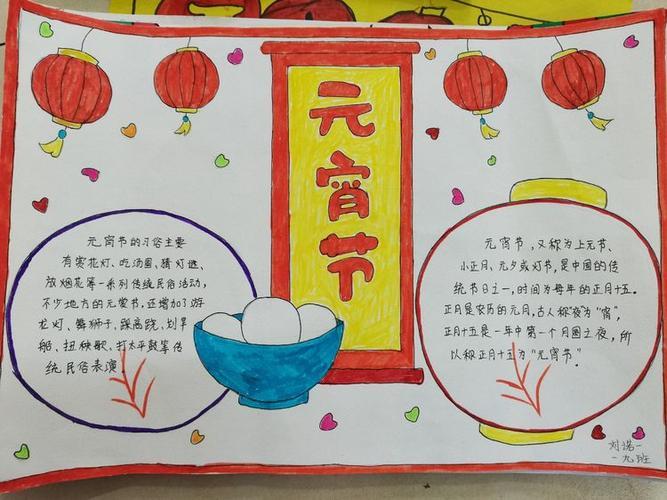 元宵节
元宵节的习俗主要
有赏花灯、吃汤圆、猜灯谜、
放烟花等一系列传统民俗活动，
不少地方的元宵节，还增加了游
龙灯、舞狮子、踩高跷、划旱
船、扭秧歌、打太平鼓等传
统民俗表演
元宵节，又称为上元节、
小正月、元夕或灯节，是中国的传
统节日之一，时间为每年的正月十五。
正月是农历的元月，古人称“夜”为“宵”，
正月十五是一年中第一个月圆之夜，所
以称正月十五为“元宵节”。
刘诺一
一九班